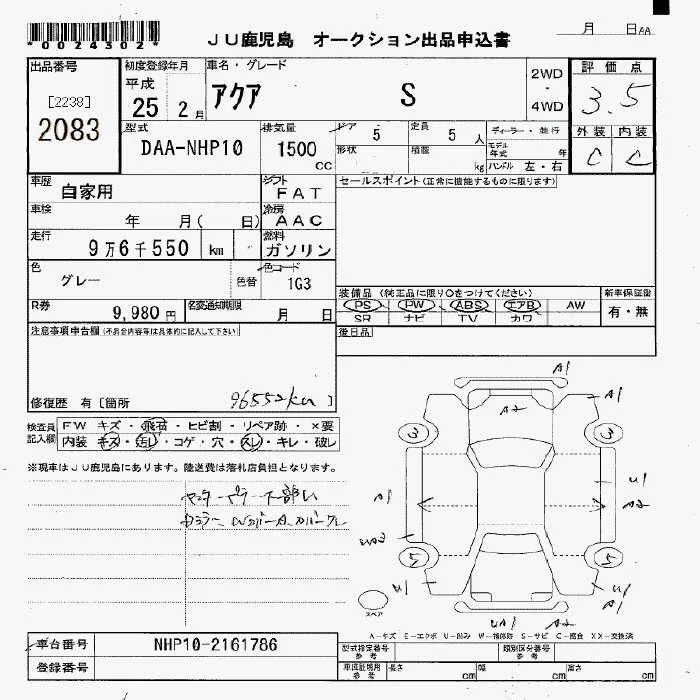 *0024302*
JU鹿児島 オークション出品申込書
月 日AA
出品番号 初度登録年月 車名・グレード 評価点
[2238] 平成 2WD
2083 25 2月 アクア S ・ 3.5
4WD
型式 排気量 ドア 5 定員 5 人 ディーラー・並行 外装 内装
DAA-NHP10 1500 cc 形状 積載 kg モデル年式 年 C C
ハンドル 左・右
車歴 自家用 シフト FAT セールスポイント(正常に機能するものに限ります)
車検 年 月( 日) 冷房 AAC
走行 9万6千550 km 燃料 ガソリン
色 グレー 色替 色コード 1G3
装備品(純正品に限り○をつけてください) 新車保証書
R券 9,980円 名変通知期限 月 日 PS PW ABS エアB AW 有・無
SR ナビ TV カワ
注意事項申告欄(不具合内容等は具体的に記入して下さい) 後日品
修復歴 有[箇所 96552km ]
検査員記入欄 FW キズ・飛石・ヒビ割・リペア跡・×要
内装 キズ・汚レ・コゲ・穴・スレ・キレ・破レ
※現車はJU鹿児島にあります。陸送費は落札店負担となります。
A1
A2 A1
3 3
A1 U1
A2
5 5
U1 U1
A2
スペア
A2
A-キズ E-エクボ U-凹み W-補修跡 S-サビ C-腐食 XX-交換済
車台番号 NHP10-2161786 型式指定番号 参考 類別区分番号 参考
登録番号 車庫証明用 参考 長さ cm 幅 cm 高さ cm